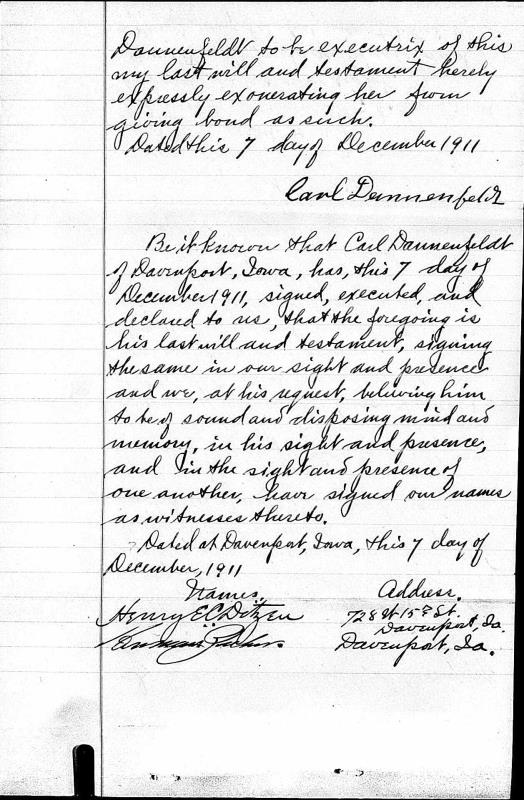 Dannenfeldt to be executrix of this
my last will and testament hereby
expressly exonerating her from
giving bond as such.
Dated this 7 day of December 1911
Carl Dannenfeldt
Be it known that Carl Dannenfeldt
of Davenport, Iowa, has, this 7 day of
December 1911, signed, executed, and
declared to us, that the foregoing is
his last will and testament, signing
the same in our sight and presence
and we, at his request, believing him
to be of sound and disposing mind and
memory, in his sight and presence,
and in the sight and presence of
one another, have signed our names
as witnesses thereto.
Dated at Davenport, Iowa, this 7 day of
December, 1911
Names. Address.
Henry E.C. Ditzen 728 W 15th St.
Davenport, Ia.
Davenport, Ia.